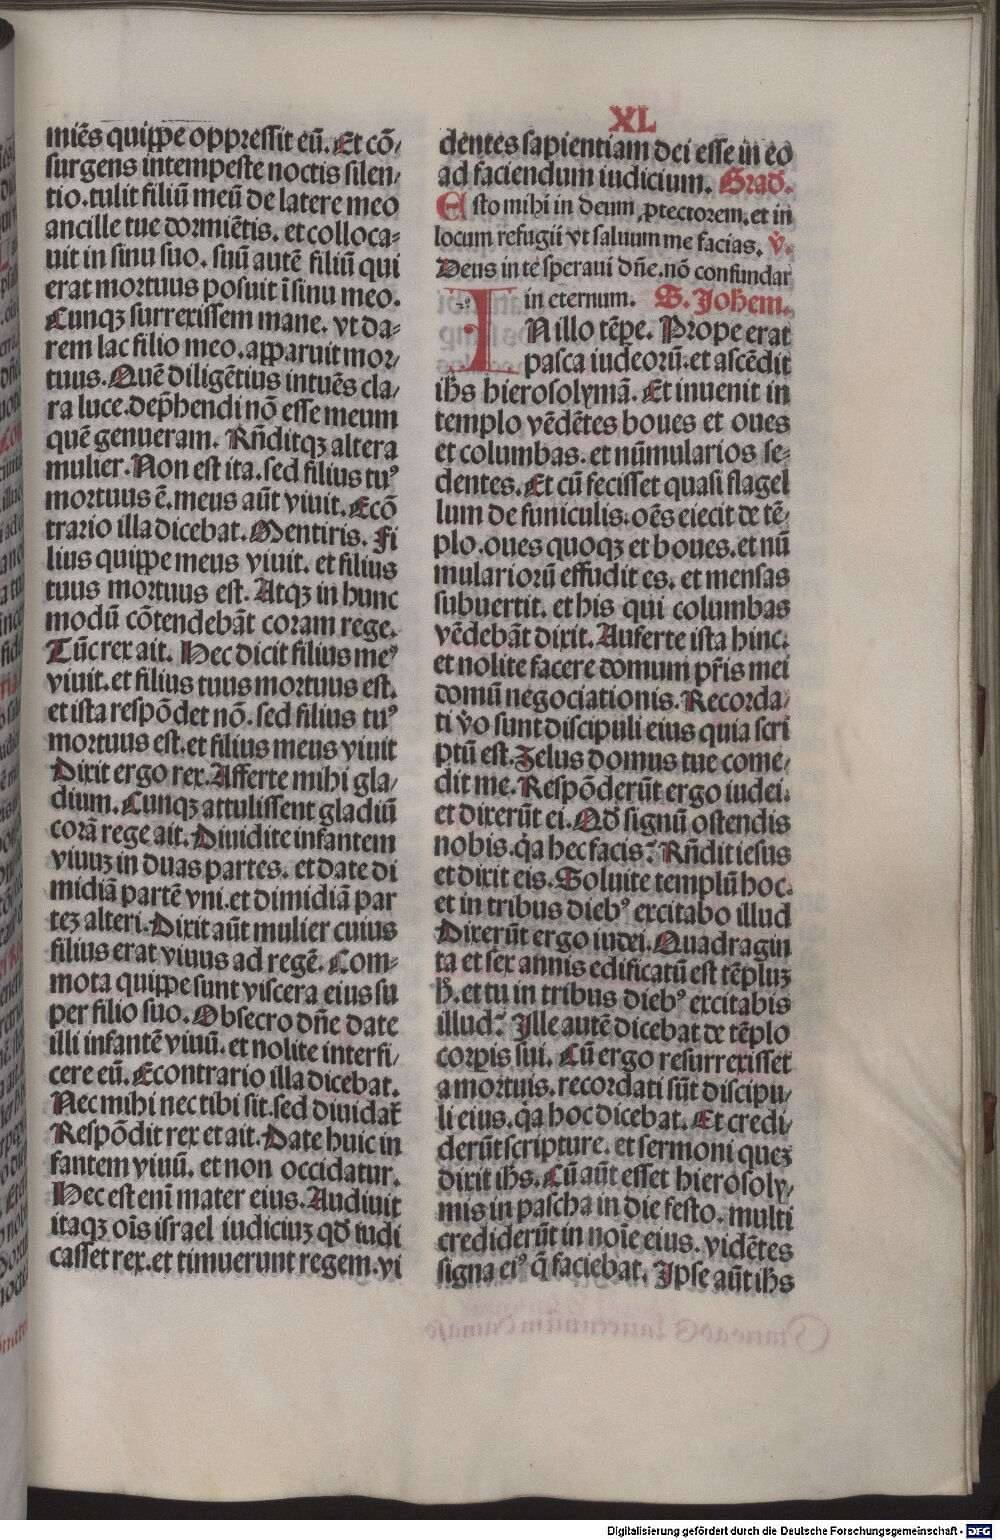 XL
miẽs quippe oppressit eũ. Et cõ/
surgens intempeste noctis silen/
tio. tulit filiũ meũ de latere meo
ancille tue dormiẽtis. et colloca⸗
uit in sinu suo. suũ autẽ filiũ qui
erat mortuus posuit ĩ sinu meo.
Cunqꝫ surrexissem mane. vt da⸗
rem lac filio meo. apparuit mor/
tuus. Quẽ diligẽtius intuẽs cla/
ra luce. dep̃hendi nõ esse meum
quẽ genueram. Rñditqꝫ altera
mulier. Non est ita. sed filius tuꝰ
mortuus ẽ. meus aũt viuit. Ecõ
trario illa dicebat. Mentiris. Fi
lius quippe meus viuit. et filius
tuus mortuus est. Atqꝫ in hunc
modũ cõtendebãt coram rege.
Tũc rex ait. Hec dicit filius meꝰ
viuit. et filius tuus mortuus est.
et ista respõdet nõ. sed filius tuꝰ
mortuus est. et filius meus viuit
Dixit ergo rex. Afferte mihi gla/
dium. Cunqꝫ attulissent gladiũ
corã rege ait. Diuidite infantem
viuuꝫ in duas partes. et date di
midiã partẽ vni. et dimidiã par
teꝫ alteri. Dixit aũt mulier cuius
filius erat viuus ad regẽ. Com⸗
mota quippe sunt viscera eius su
per filio suo. Obsecro dñe date
illi infantẽ viuũ. et nolite interfi/
cere eũ. Econtrario illa dicebat.
Nec mihi nec tibi sit. sed diuidat᷑
Respõdit rex et ait. Date huic in
fantem viuũ. et non occidatur.
Hec est eni᷑ mater eius. Audiuit
itaqꝫ oı̃s israel iudiciuꝫ qd̃ iudi
casset rex. et timuerunt regem. vi
dentes sapientiam dei esse in eo
ad faciendum iudicium. Grad̃.
Esto mihi in deum ꝓtectorem. et in
locum refugii vt saluum me facias. v̾.
Deus in te speraui dñe. nõ confundar
in eternum. S. Johem.
IN illo tẽpe. Prope erat
pasca iudeorũ. et ascẽdit
ih̃s hierosolymã. Et inuenit in
templo vẽdẽtes boues et oues
et columbas. et nũmularios se⸗
dentes. Et cũ fecisset quasi flagel
lum de funiculis. oẽs eiecit de tẽ/
plo. oues quoqꝫ et boues. et nũ
mulariorũ effudit es. et mensas
subuertit. et his qui columbas
vẽdebãt dixit. Auferte ista hinc.
et nolite facere domum pr̃is mei
domũ negociationis. Recorda/
ti v̾o sunt discipuli eius quia scri
ptũ est. Zelus domus tue come/
dit me. Respõderũt ergo iudei.
et dixerũt ei. Qd̃ signũ ostendis
nobis. q̃a hec facis? Rñdit iesus
et dixit eis. Soluite templũ hoc.
et in tribus diebꝰ excitabo illud
Dixerũt ergo iudei. Quadragin
ta et sex annis edificatũ est tẽpluꝫ
h̃. et tu in tribus diebꝰ excitabis
illud? Ille autẽ dicebat de tẽplo
corꝑis sui. Cũ ergo resurrexisset
a mortuis. recordati sũt discipu/
li eius. q̃a hoc dicebat. Et credi/
derũt scripture. et sermoni queꝫ
dixit ih̃s. Cũ aũt esset hierosoly/
mis in pascha in die festo. multi
crediderũt in noı̃e eius. vidẽtes
signa eiꝰ q̃ faciebat. Ipse aũt ih̃s
Digitalisierung gefördert durch die Deutsche Forschungsgemeinschaft - DFG